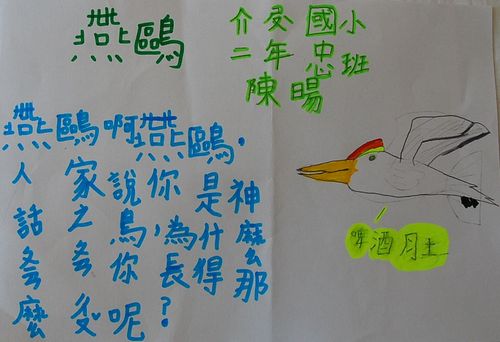 燕鷗
介國小
二年忠班
陳暘
燕鷗啊燕鷗，
人家說你是神
話之鳥，為什麼
你長得那
麼呢？
啤酒肚